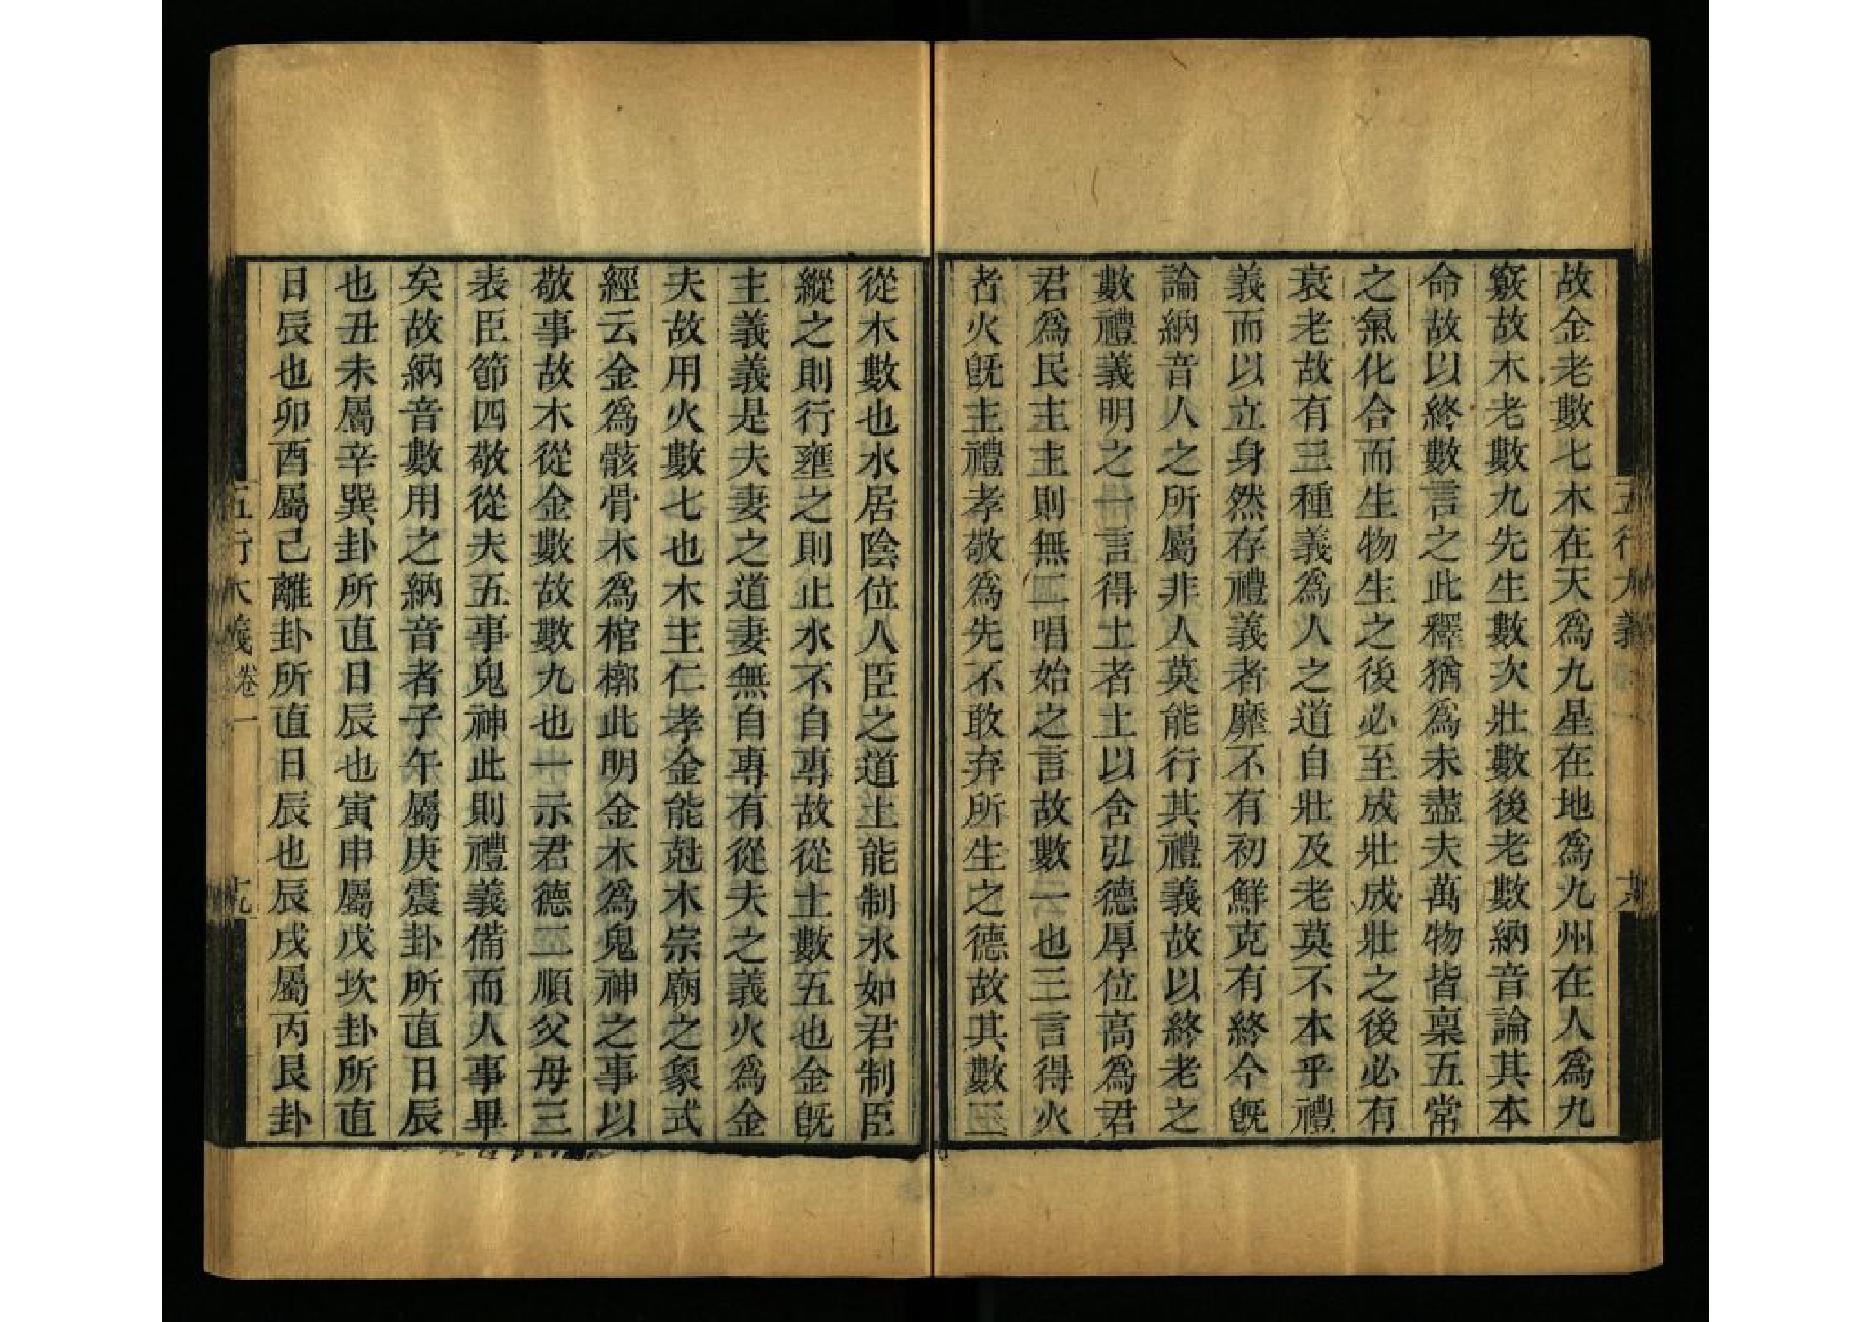 五行大義
故金老數七木在天爲九星在地爲九州在人爲九
竅故木老數九先生數次壯數後老數納音論其本
命故以終數言之此釋猶爲未盡夫萬物皆稟五常
之氣化合而生物生之後必至成壯成壯之後必有
衰老故有三種義爲人之道自壯及老莫不本乎禮
義而以立身然存禮義者靡不有初鮮克有終今旣
論納音人之所屬非人莫能行其禮義故以終老之
數禮義明之一言得土者土以含弘德厚位高爲君
君爲民主主則無二唱始之言故數一也三言得火
者火旣主禮孝敬爲先不敢弃所生之德故其數三
從木數也水居陰位人臣之道土能制水如君制臣
縱之則行壅之則止水不自專故從土數五也金旣
主義義是夫妻之道妻無自專有從夫之義火爲金
夫故用火數七也木主仁孝金能尅木宗廟之象式
經云金爲骸骨木爲棺槨此明金木爲鬼神之事以
敬事故木從金數故數九也一示君德二順父母三
表臣節四敬從夫五事鬼神此則禮義備而人事畢
矣故納音數用之納音者子午屬庚震卦所直日辰
也丑未屬辛巽卦所直日辰也寅申屬戊坎卦所直
日辰也卯酉屬己離卦所直日辰也辰戌屬丙艮卦
五行大義卷一 十九